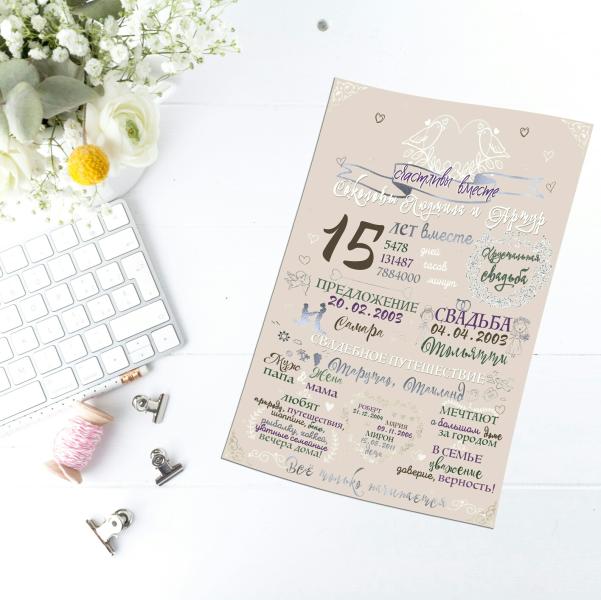 счастливы вместе
Соколовы Людмила и Артур
15
лет вместе
5478 дней
131487 часов
7884000 минут
Хрустальная
свадьба
ПРЕДЛОЖЕНИЕ
20.02.2003
Самара
СВАДЬБА
04.04.2003
Тольятти
СВАДЕБНОЕ ПУТЕШЕСТВИЕ
Паттайя, Таиланд
Муж Жена
папа & мама
ЛЮБЯТ
природу, путешествия,
шоппинг, баню,
рыбалку, хоккей,
уютные семейные
вечера дома!
РОБЕРТ
21.12.2004
МАРИЯ
09.11.2006
МИРОН
15.08.2011
дети
МЕЧТАЮТ
о большом доме
ЗА ГОРОДОМ
В СЕМЬЕ
уважение
доверие, ВЕРНОСТЬ!
Всё только начинается